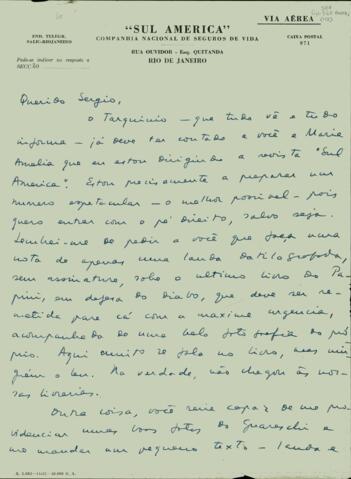 VIA AÉREA
"SUL AMERICA"
COMPANHIA NACIONAL DE SEGUROS DE VIDA
END. TELEGR.
SALIC-RIOJANEIRO
CAIXA POSTAL
971
RUA OUVIDOR - Esq. QUITANDA
RIO DE JANEIRO
Pede-se indicar na resposta a
SECÇÃO
Querido Sergio,
o Tarquinio — que tudo vê e tudo
informa — já deve ter contado a você e Maria
Amelia que eu estou dirigindo a revista "Sul
America". Estou precisamente a preparar um
numero espetacular — o melhor possivel — pois
quero entrar com o pé direito, salvo seja.
Lembrei-me de pedir a você que faça uma
nota de apenas uma lauda datilografada,
sem assinatura, sobre o ultimo livro do Pa-
pini, em defesa do Diabo, que deve ser re-
metida para cá com a maxima urgencia,
acompanhada de uma bela fotografia do pró-
prio. Aqui muito se fala no livro, mas nin-
guém o leu. Na verdade, não chegou às nos-
sas livrarias.
Outra coisa, você seria capaz de me pro-
videnciar umas boas fotos do Guareschi e
me mandar um pequeno texto — lauda e